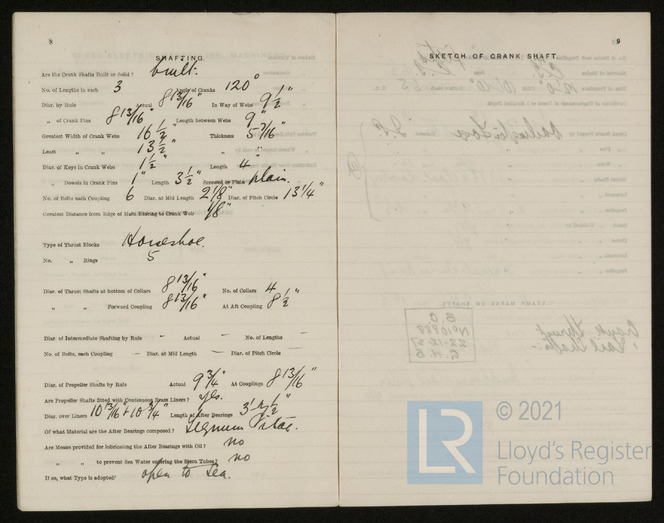 8
SHAFTING
Are the Crank Shafts Built or Solid? built.
No. of Lengths in each 3 Angle of Cranks 120°
Diar. by Rule Actual 8 13/16" In Way of Webs 9 1/2"
„ of Crank Pins 8 13/16" Length between Webs 9"
Greatest Width of Crank Webs 16 1/2" Thickness 5 7/16"
Least „ „ 13 1/2" „ „
Diar. of Keys in Crank Webs 1 1/2" Length 4"
„ Dowels in Crank Pins 1" Length 3 1/2" Screwed or Plain plain.
No. of Bolts each Coupling 6 Diar. at Mid Length 2 1/8" Diar. of Pitch Circle 13 1/4"
Greatest Distance from Edge of Main Bearing to Crank Web 1/8"
Type of Thrust Blocks Horseshoe.
No. „ Rings 5
Diar. of Thrust Shafts at bottom of Collars 8 13/16" No. of Collars 4
„ „ Forward Coupling 8 13/16" At Aft Coupling 8 1/2"
Diar. of Intermediate Shafting by Rule – Actual – No. of Lengths –
No. of Bolts, each Coupling – Diar. at Mid Length – Diar. of Pitch Circle –
Diar. of Propeller Shafts by Rule Actual 9 3/4" At Couplings 8 13/16"
Are Propeller Shafts fitted with Continuous Brass Liners? yes.
Diar. over Liners 10 13/16" + 10 3/4" Length of After Bearings
Of what Material are the After Bearings composed? Lignum Vitae.
Are Means provided for lubricating the After Bearings with Oil? no
„ „ to prevent Sea Water entering the Stern Tubes? no
If so, what Type is adopted? open to Sea.
9
SKETCH OF CRANK SHAFT
© 2021
LR
Lloyd's Register
Foundation